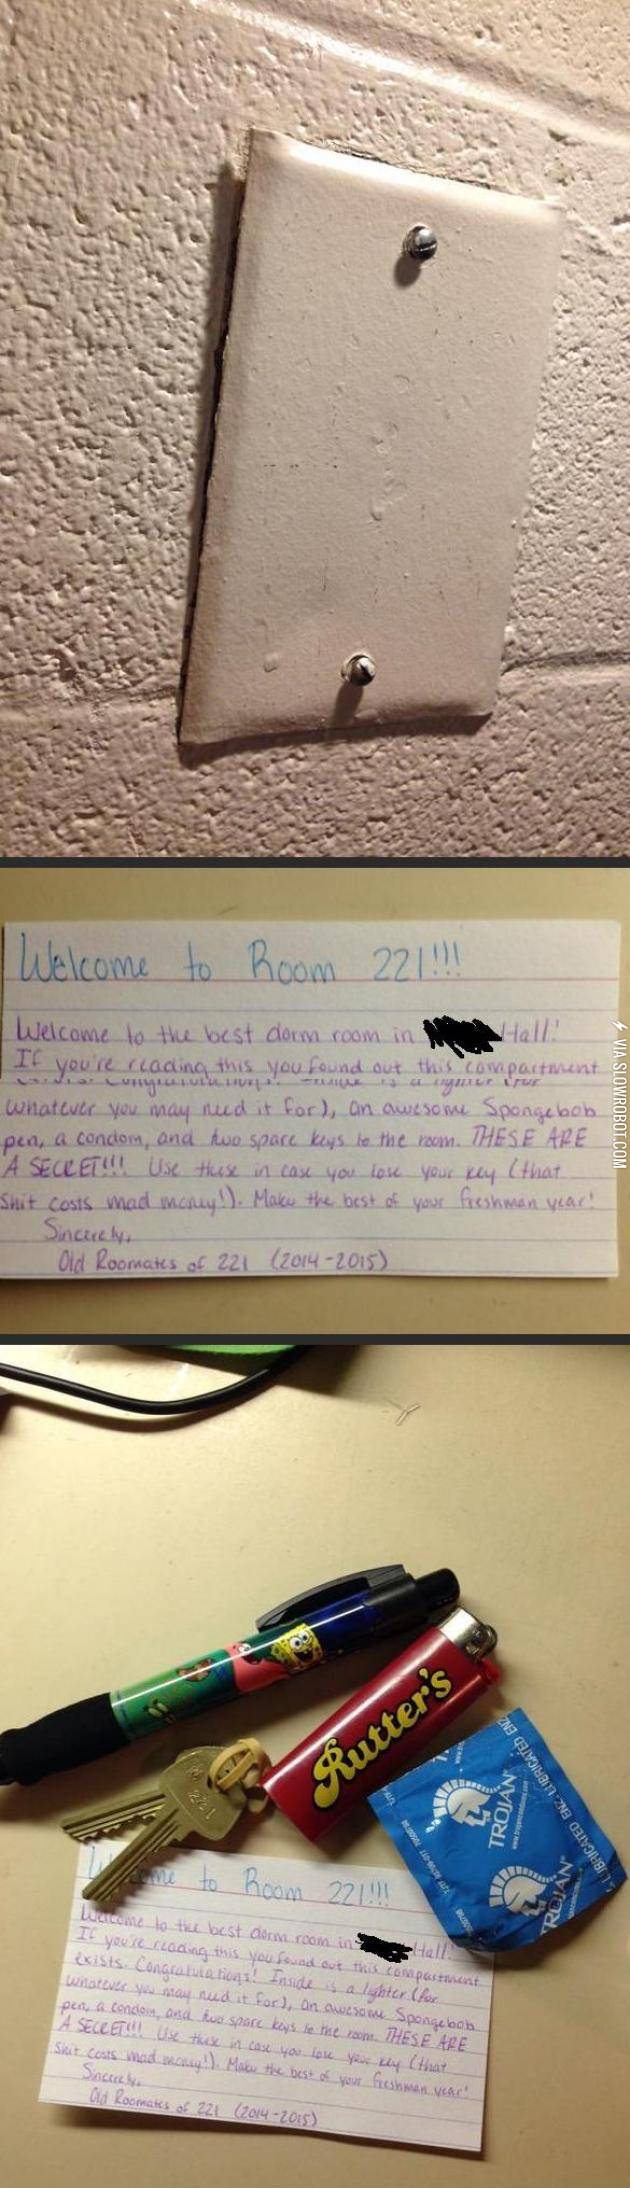 Welcome to Room 221!!!
Welcome to the best dorm room in Hall!
If you're reading this you found out this compartment
exists. Congratulations! Inside is a lighter (for
whatever you may need it for), an awesome Spongebob
pen, a condom, and two spare keys to the room. THESE ARE
A SECRET!!! Use these in case you lose your key (that
shit costs mad money!). Make the best of your freshman year!
Sincerely,
Old Roomates of 221 (2014-2015)
VIA SLOWROBOT.COM
Rutter's
TROJAN
LUBRICATED ENZ
TROJAN
LUBRICATED ENZ
Welcome to Room 221!!!
Welcome to the best dorm room in Hall!
If you're reading this you found out this compartment
exists. Congratulations! Inside is a lighter (for
whatever you may need it for), an awesome Spongebob
pen, a condom, and two spare keys to the room. THESE ARE
A SECRET!!! Use these in case you lose your key (that
shit costs mad money!). Make the best of your freshman year!
Sincerely,
Old Roomates of 221 (2014-2015)